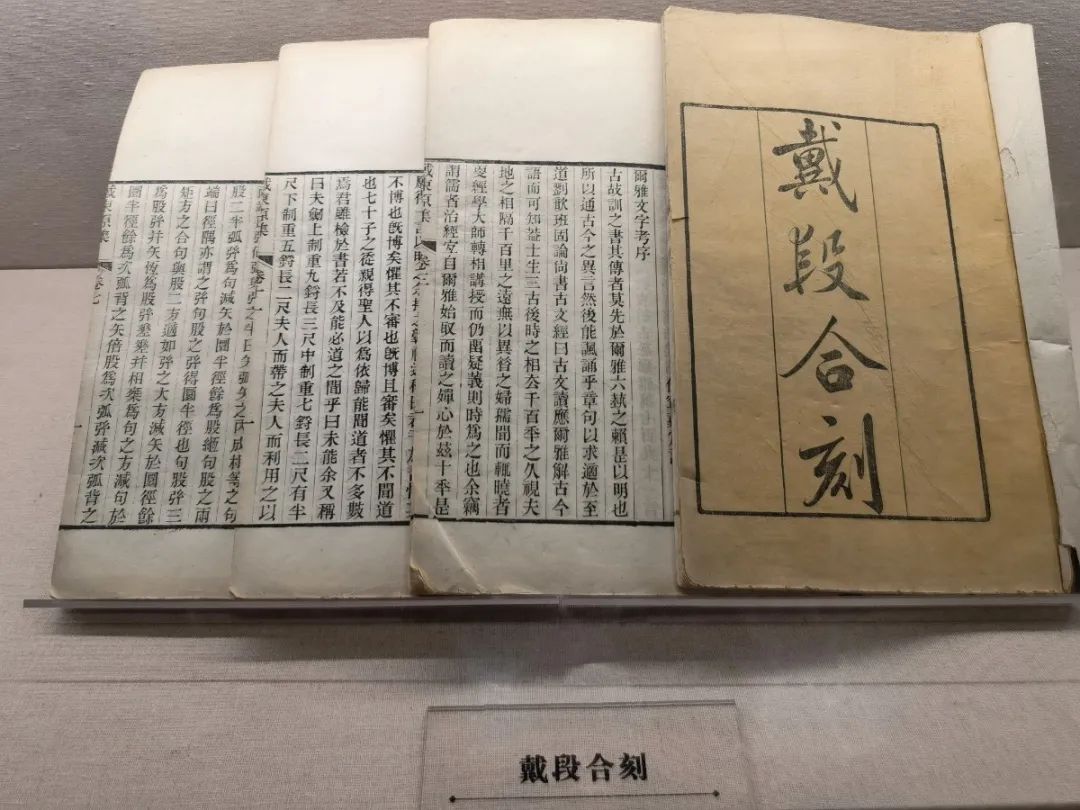 戴段合刻
爾雅文字考序
古故訓之書其傳者莫先於爾雅六埶之賴是以明也
所以通古今之異言然後能諷誦乎章句以求適於至
道劉歆班固論尙書古文經曰古文讀應爾雅解古今
語而可知葢士生三古後時之相去千百秊之久視夫
地之相隔千百里之遠無以異昝之婦孺聞而輒曉者
更經學大師轉相講授而仍畱疑義則時爲之也余竊
謂儒者治經宜自爾雅始取而讀之殫心於兹十秊是
戴東原集 卷三
不博也旣博矣懼其不審也旣博且審矣懼其不聞道
也七十子之從親得聖人以爲依歸能聞道者不多數
焉君雖檢於書若不及能必道之聞乎曰未能余又稱
曰夫劍上制重九鋝長三尺中制重七鋝長二尺有半
尺下制重五鋝長二尺夫人而帶之夫人而利用之以
戴東原集
股二半弧弦爲句減矢於圜半徑餘爲股繩句股之兩
端曰徑隅亦謂之弦句股之弦得圜半徑也句股弦三
矩方之合句與股二方適如弦之大方減矢於圜徑餘
爲股弦并矢恆爲股弦差差并相乘爲句之方減句於
圜半徑餘爲次弧背之矢倍股爲次弧弦減次弧背之
戴東原集 卷七
戴段合刻